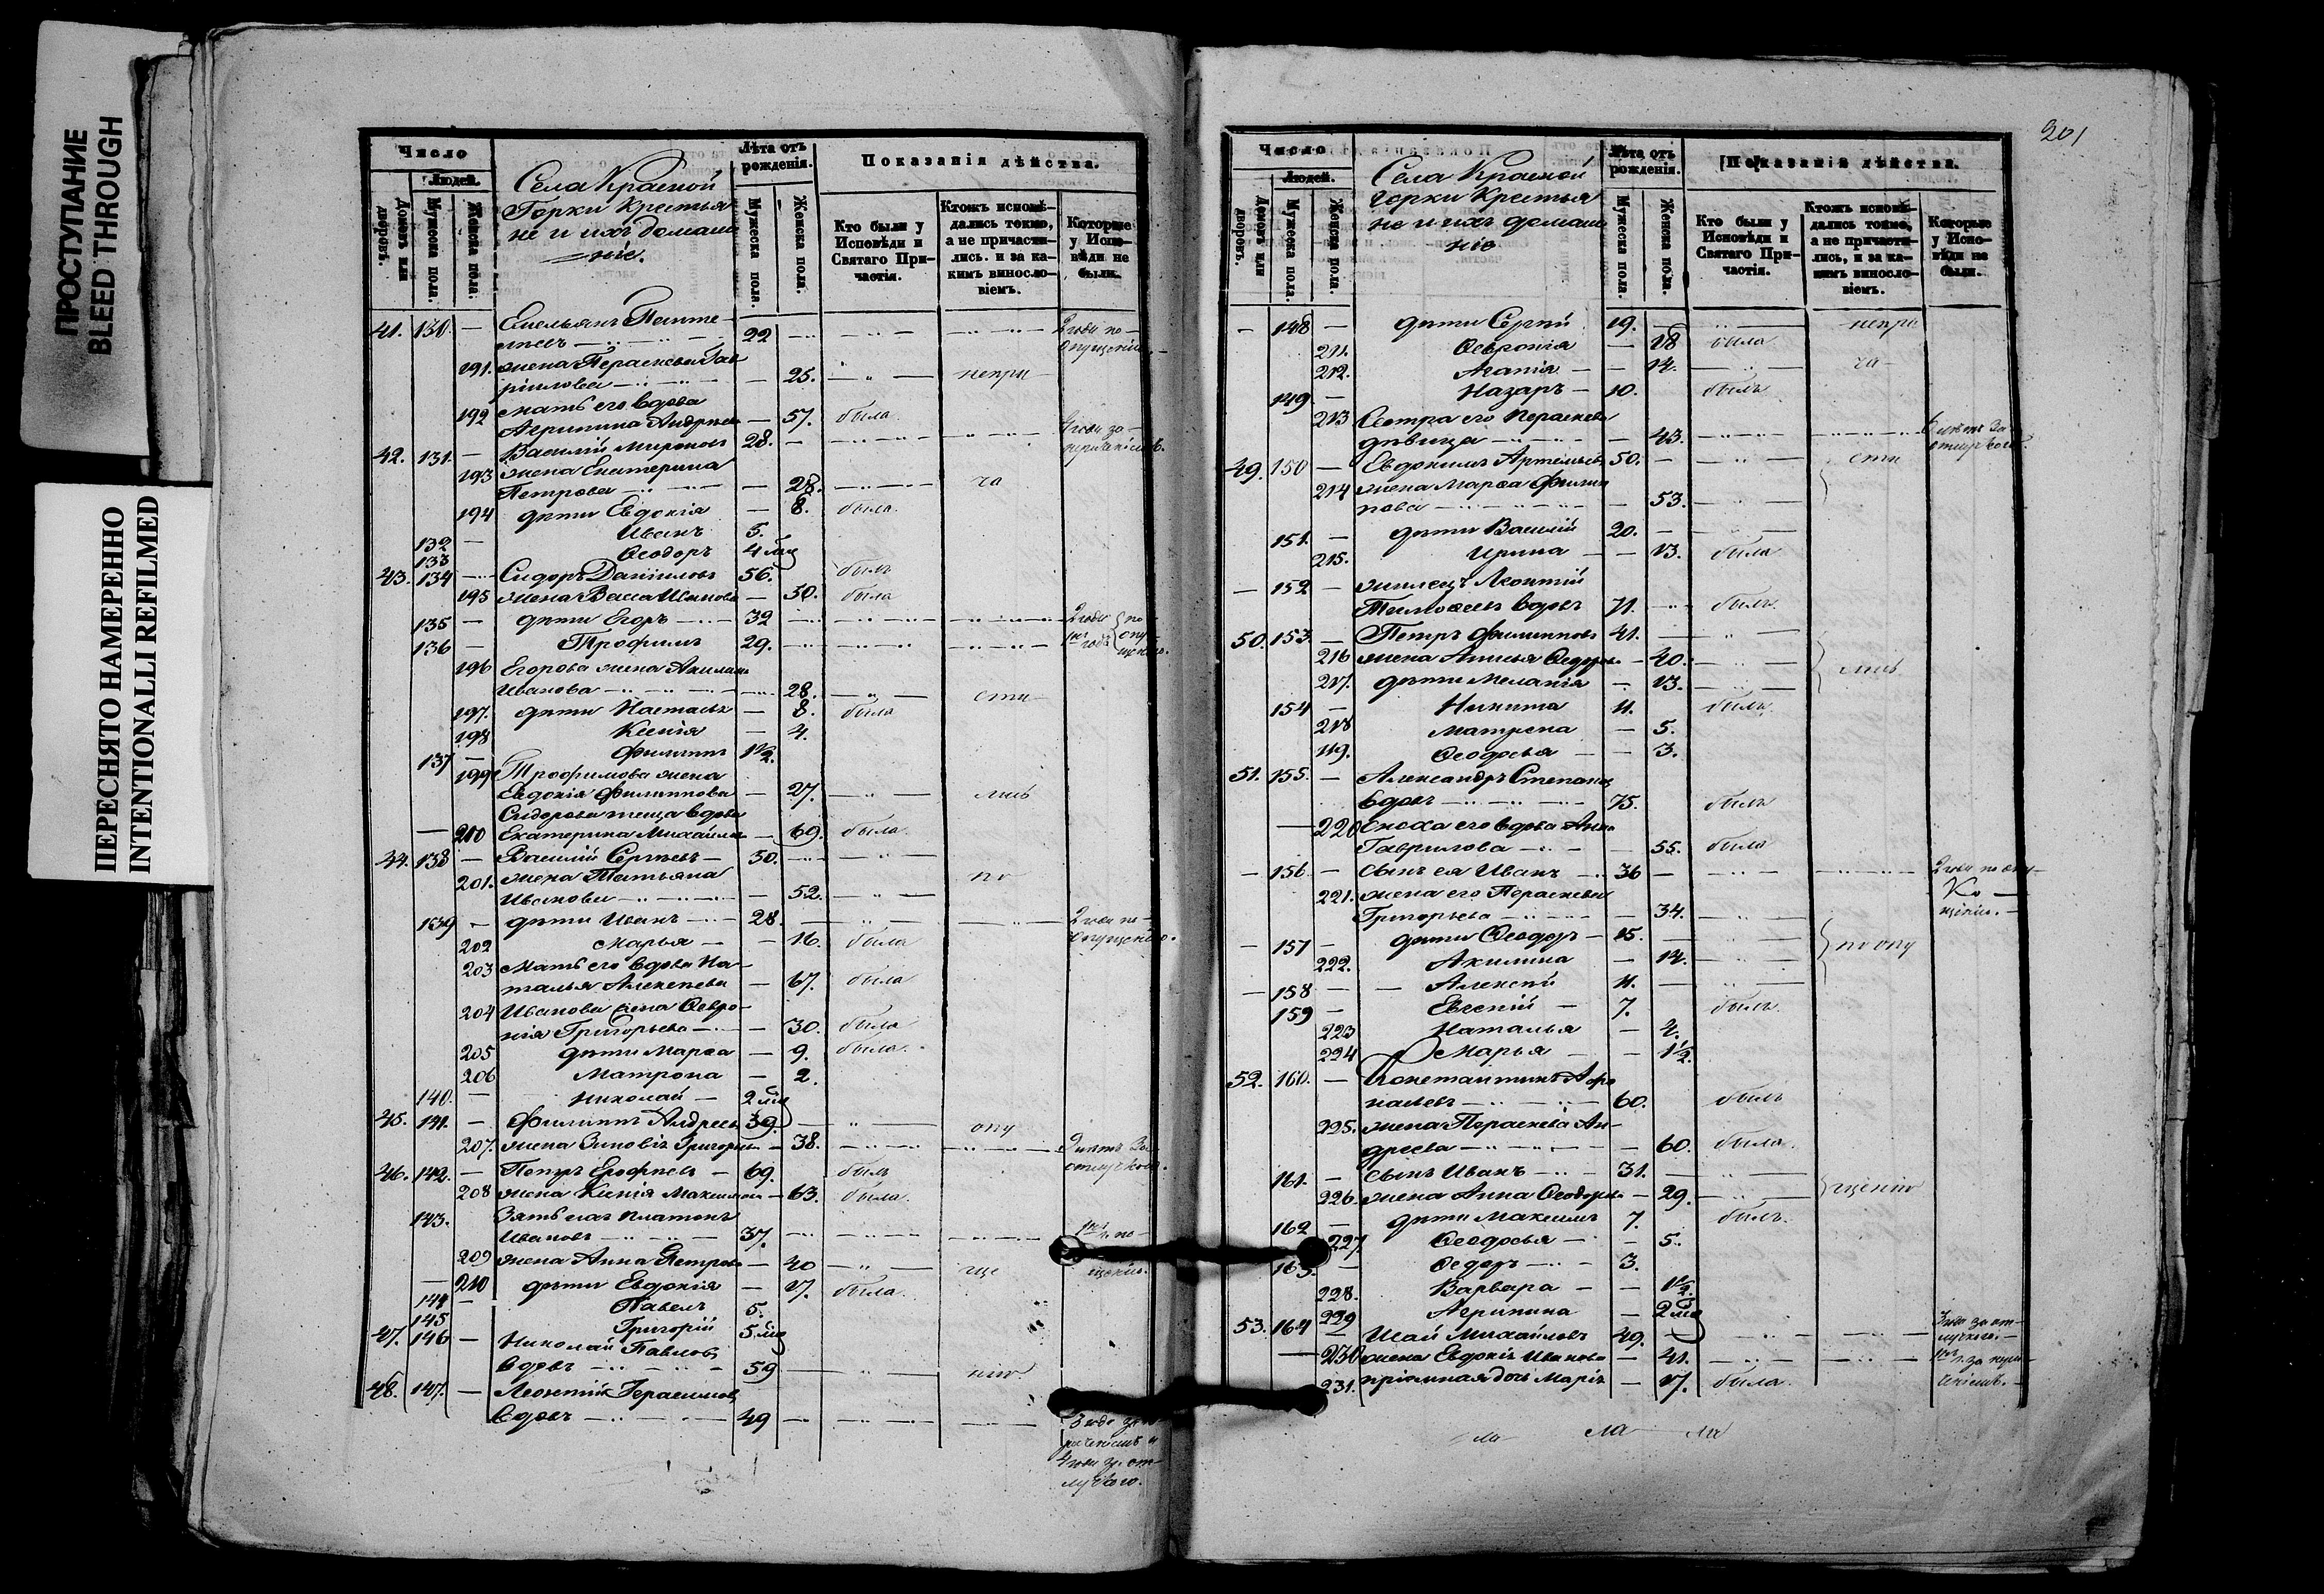 ПРОСТУПАНИЕ
BLEED THROUGH
ПЕРЕСНЯТО НАМЕРЕННО
INTENTIONALLI REFILMED
Число
Людей.
Домовъ или дворовъ.
Мужеска пола.
Женска пола.
Села Красной
Горки крестья
не и ихъ домаш
ніе.
Лѣта отъ рожденія.
Мужеска пола.
Женска пола.
Показанія дѣйства.
Кто были у Исповѣди и Святаго Причастія.
Ктожъ исповѣдались токмо, а не причастились. и за какимъ винословіемъ.
Которые у Исповѣди не были.
41. 130. — Емельянъ
22 2 года по
опущенію.
191. жена Параскева Гав
рилова — 25. непри
192 мать его вдова
Агрипина Андреева — 57. была
42. 131. — Василій Мироновъ 28. —
193 жена Екатерина
Петрова — 28. ча
194 дѣти Евдокія — 8. была.
132 — Иванъ 5.
133 Ѳеодоръ 4 мѣс
43. 134 — Сидоръ Даніиловъ 56. былъ
195 жена Васса Иванова — 50. была
135 — дѣти Егоръ — 32 2 года по
136 — Трофимъ 29. опу
щенію.
196 Егорова жена Акилина
Иванова — 28. сти
197. дѣти Наталья — 8. была
198 Ксенія — 4.
137 — Филиппъ 1 1/2.
199 Трофимова жена
Евдокія Филиппова — 27. лись
Сидорова теща вдова
200 Екатерина Михайлова — 69. была.
44. 138 — Василій Сергѣевъ — 50.
201. жена Татьяна по
Иванова — 52.
139 — дѣти Иванъ — 28. 2 года по
202 Марья — 16. была опущенію.
203 мать его вдова На
талья Алексѣева — 67. была
204 Иванова жена Ѳевро
нія Григорьева — 30. была
205 дѣти Марѳа — 9. была.
206 Матрона — 2.
140. — Николай — 2 мѣс
45. 141. — Филиппъ Андреевъ 39. опу
207. жена Зиновія Григорьева — 38.
46. 142. — Петръ Ерофѣевъ — 69. былъ
208 жена Ксенія Максимова — 63. была.
143. Зять ихъ Платонъ
Ивановъ — 37.
209 жена Анна Петрова — 40 ще
210 дѣти Евдокія — 7. была.
144 — Павелъ 5.
145 Григорій 5 мѣс
47. 146 — Николай Павловъ
вдовъ — 59 нію.
48. 147. — Леонтій Герасимовъ
вдовъ — 49
201
Число
Людей.
Домовъ или дворовъ.
Мужеска пола.
Женска пола.
Села Красной
Горки крестья
не и ихъ домаш
ніе
Лѣта отъ рожденія.
Мужеска пола.
Женска пола.
Показанія дѣйства.
Кто были у Исповѣди и Святаго Причастія.
Ктожъ исповѣдались токмо, а не причастились, и за какимъ винословіемъ.
Которые у Исповѣди не были.
— 148 — дѣти Сергѣй 19. — непри
211. Ѳевронія — 18 была
212. Агапія — 14. ча
149. — Назаръ — 10. былъ
213 Сестра его Параскева
дѣвица — 43.
49. 150 — Евдокимъ Артемьевъ 50. — сти
214 жена Марѳа Филип
пова — 53.
151. — дѣти Василій 20. —
215. Ирина — 13. была
— 152 — Леонтій
вдовъ 71. былъ
50. 153. — Петръ Филипповъ 41. —
216 жена Анисья Ѳедорова — 40. лись
217. дѣти Меланія — 13.
154 — Никита 11. былъ
218 Матрена — 5.
219. Ѳеодосья — 3.
51. 155. — Александръ Степановъ
вдовъ — 75. былъ
220 Сноха его вдова Анна
Гаврилова — 55. была
— 156 — сынъ ея Иванъ — 36
221. жена его Параскева
Григорьева — 34.
— 157 — дѣти Ѳеодоръ — 15. по опу
222. Акилина — 14.
— 158 — Алексѣй 11.
159 — Евсевій — 7. былъ
223 Наталья — 4.
224 Марья — 1 1/2.
52. 160. — Константинъ Аѳа
насьевъ — 60. былъ
225. жена Параскева Ан
дреева — 60. была.
161. — сынъ Иванъ — 31. щенію
226. жена Анна Ѳеодорова — 29.
162 — дѣти Максимъ 7. былъ.
227. Ѳеодосья — 5.
163. — Ѳедоръ — 3.
228. Варвара — 1 1/2.
229 Агрипина — 2 мѣс
53. 164 — Исай Михайловъ 49.
230 жена Евдокія Иванова — 41.
231. пріемная дочь Марія — 7. была.